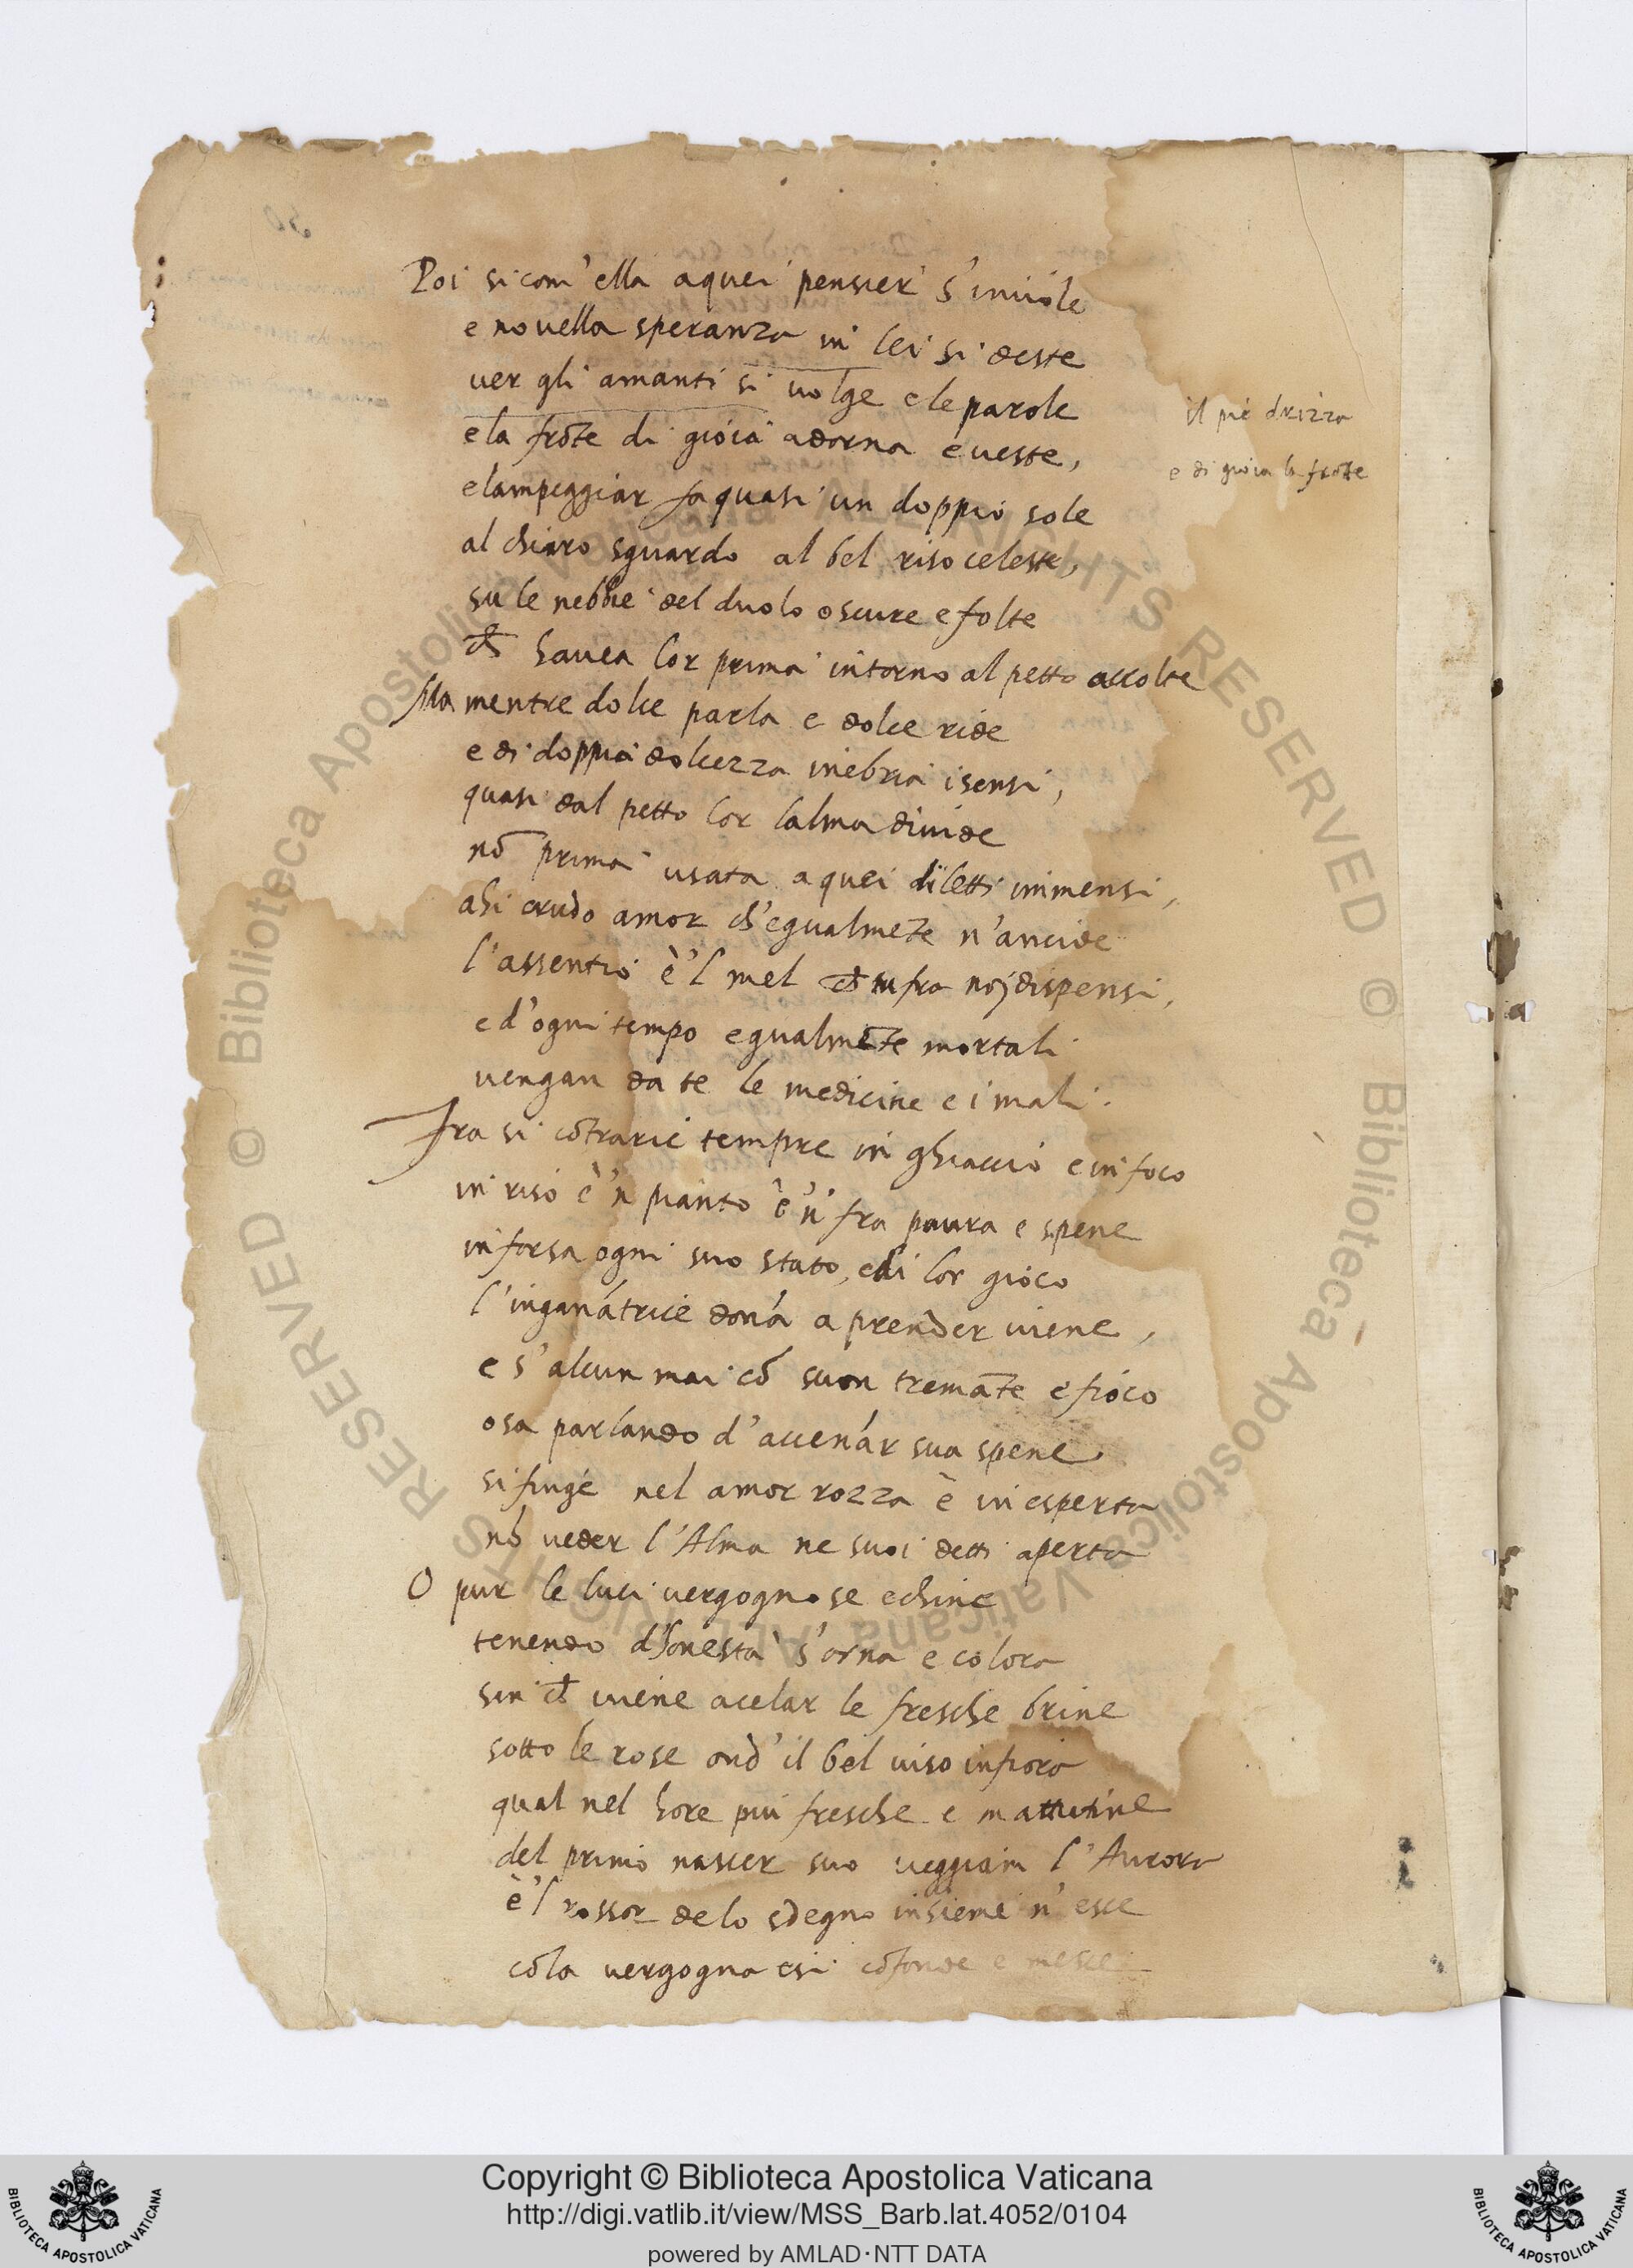 Poi si com'ella a quei pensier s'inuole
e nouella speranza in lei si deste
uer gli amanti si uolge e le parole
e la frōte di gioia adorna e ueste,
il piè drizza
e di gioia la frōte
e lampeggiar fa quasi un doppio sole
al chiaro sguardo al bel riso celeste,
su le nebbie del duolo oscure e folte
ch' hauea lor prima intorno al petto accolte
Ma mentre dolce parla e dolce ride
e di doppia dolcezza inebria i sensi,
quasi dal petto lor l'alma diuide
nō prima usata a quei diletti immensi,
ahi crudo amor ch'egualmēte n'ancide
l'assentio è'l mel che tu fra noi dispensi,
e d'ogni tempo egualmēte mortali
uengan da te le medicine e i mali.
Fra si cōtrarie tempre in ghiaccio e in foco
in riso è'n pianto è'n fra paura e spene
inforsa ogni suo stato, e di lor gioco
l'inganātrice donā a prender uiene,
e s'alcun mai cō suon tremāte e fioco
osa parlando d'accenār sua spene
si finge nel amor rozza è inesperta
nō ueder l'Alma ne suoi detti aperta
O pur le luci uergognose e chine
tenendo d'honestà s'orna e colora
sin che uiene a celar le fresche brine
sotto le rose ond'il bel uiso infiora
qual nel hore piu fresche e mattutine
del primo nascer suo ueggiam l'Aurora
è'l rossor de lo sdegno insieme n'esce
cō la uergogna e si cōfonde e mesce
BIBLIOTECA APOSTOLICA VATICANA
Copyright © Biblioteca Apostolica Vaticana
http://digi.vatlib.it/view/MSS_Barb.lat.4052/0104
powered by AMLAD·NTT DATA
BIBLIOTECA APOSTOLICA VATICANA
© Biblioteca Apostolica Vaticana ALL RIGHTS RESERVED
© Biblioteca Apostolica Vaticana ALL RIGHTS RESERVED